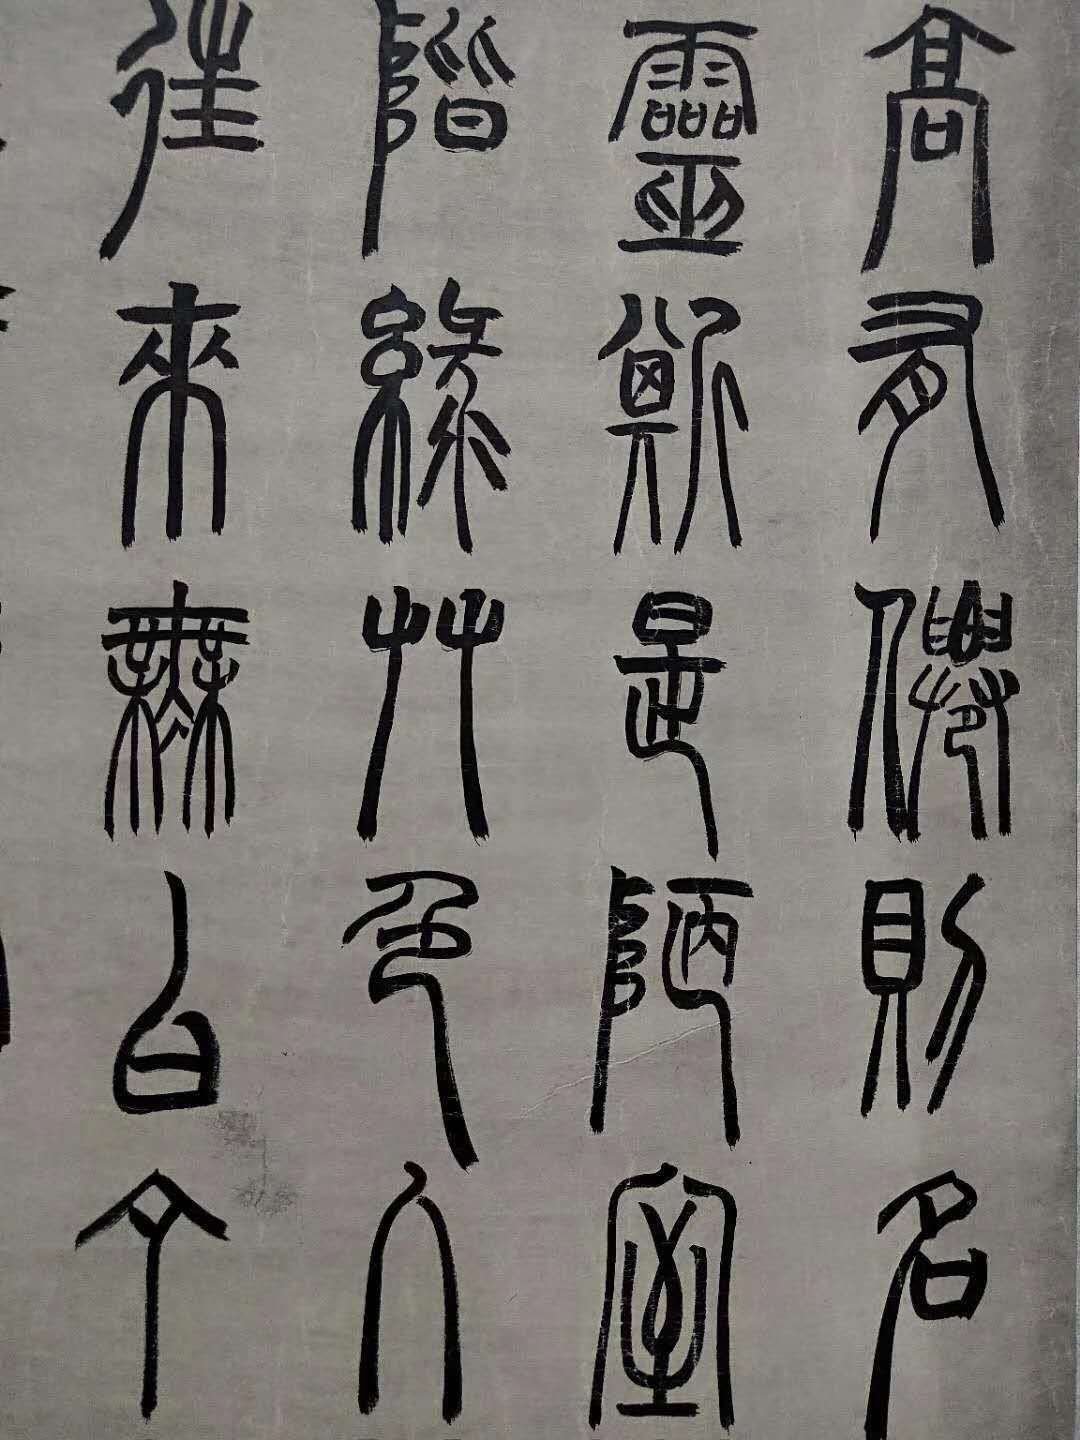 高有僊則名
靈斯是陋室
階綠艸色入
往來無白丁